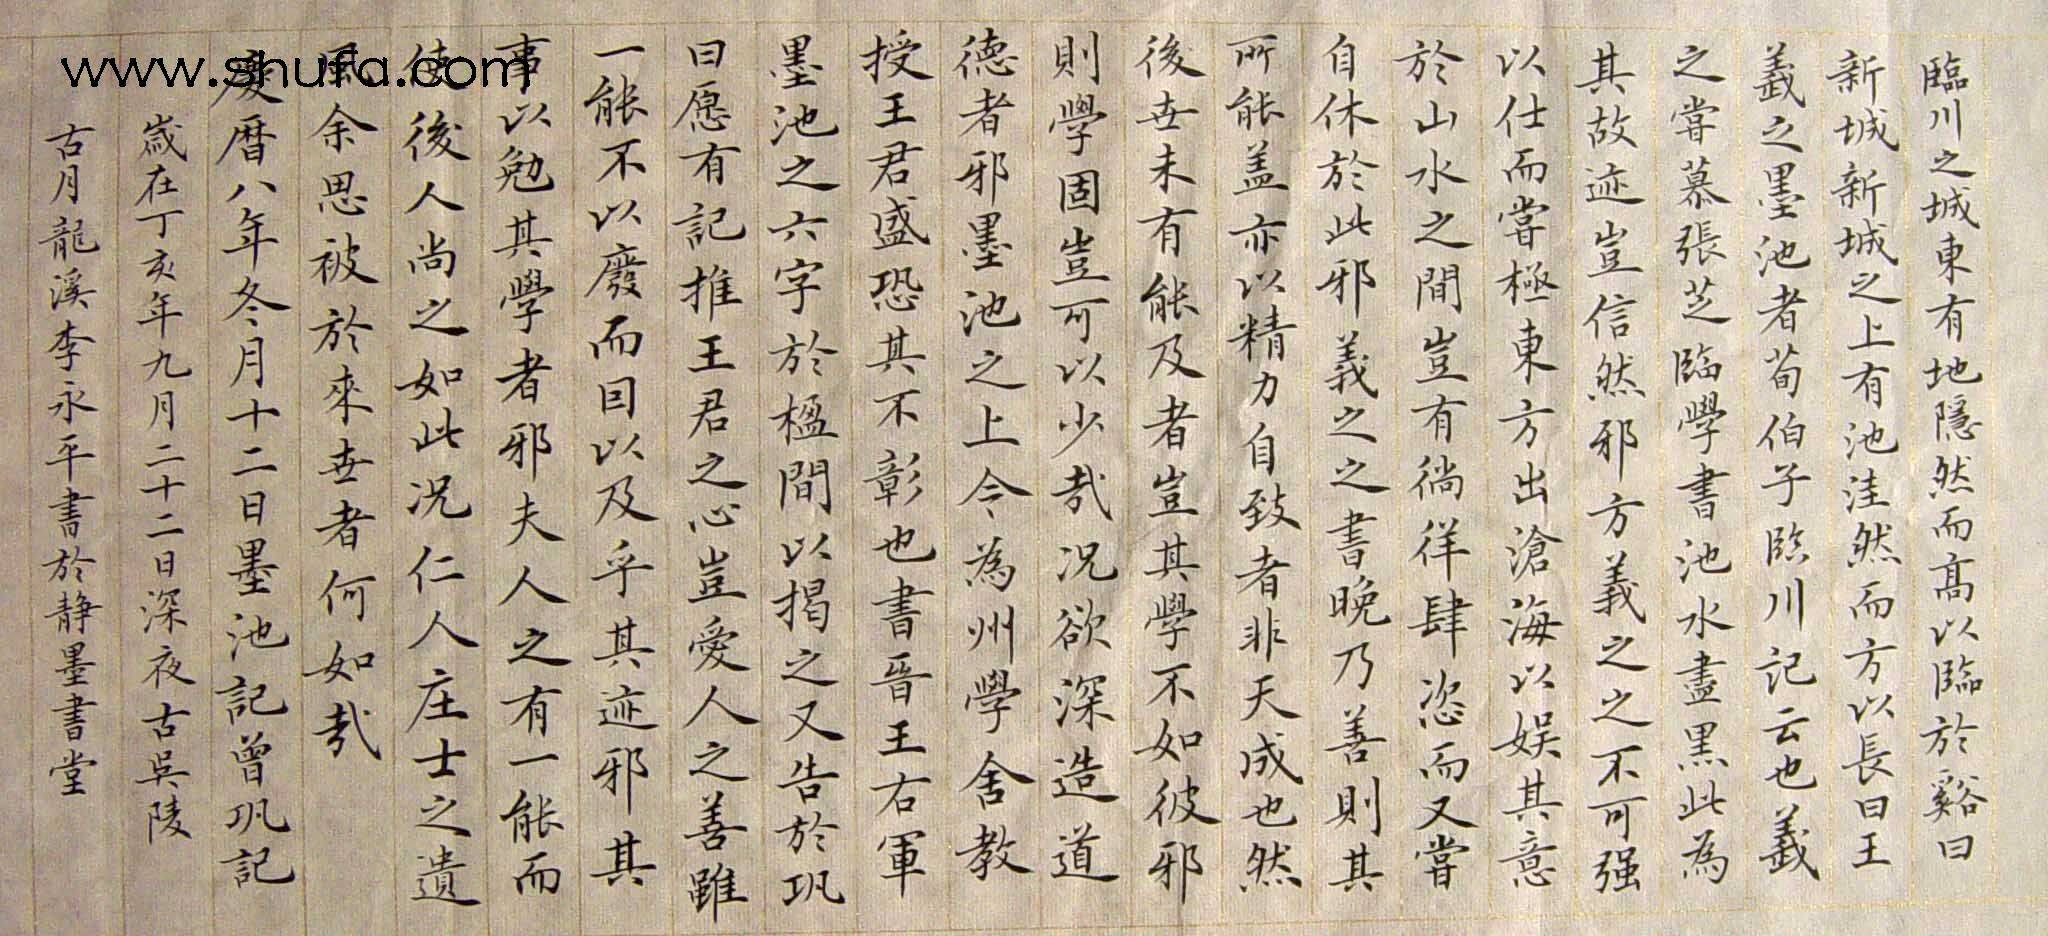 臨川之城東有地隱然而高以臨於谿曰
新城新城之上有池洼然而方以長曰王
羲之墨池者荀伯子臨川記云也羲
之嘗慕張芝臨學書池水盡黑此為
其故迹豈信然邪方羲之之不可强
以仕而嘗極東方出滄海以娱其意
於山水之間豈有徜徉肆恣而又嘗
自休於此邪羲之之書晚乃善則其
所能盖亦以精力自致者非天成也然
後世未有能及者豈其學不如彼邪
則學固豈可以少哉况欲深造道
德者邪墨池之上今為州學舍教
授王君盛恐其不彰也書晋王右軍
墨池之六字於楹間以揭之又告於巩
曰愿有記推王君之心豈愛人之善雖
一能不以廢而因以及乎其迹邪其
事以勉其學者邪夫人之有一能而
使後人尚之如此况仁人庄士之遺
風余思被於來世者何如哉
慶曆八年冬月十二日墨池記曾巩記
歲在丁亥年九月二十二日深夜古吳陵
古月龍溪李永平書於静墨書堂
www.shufa.com